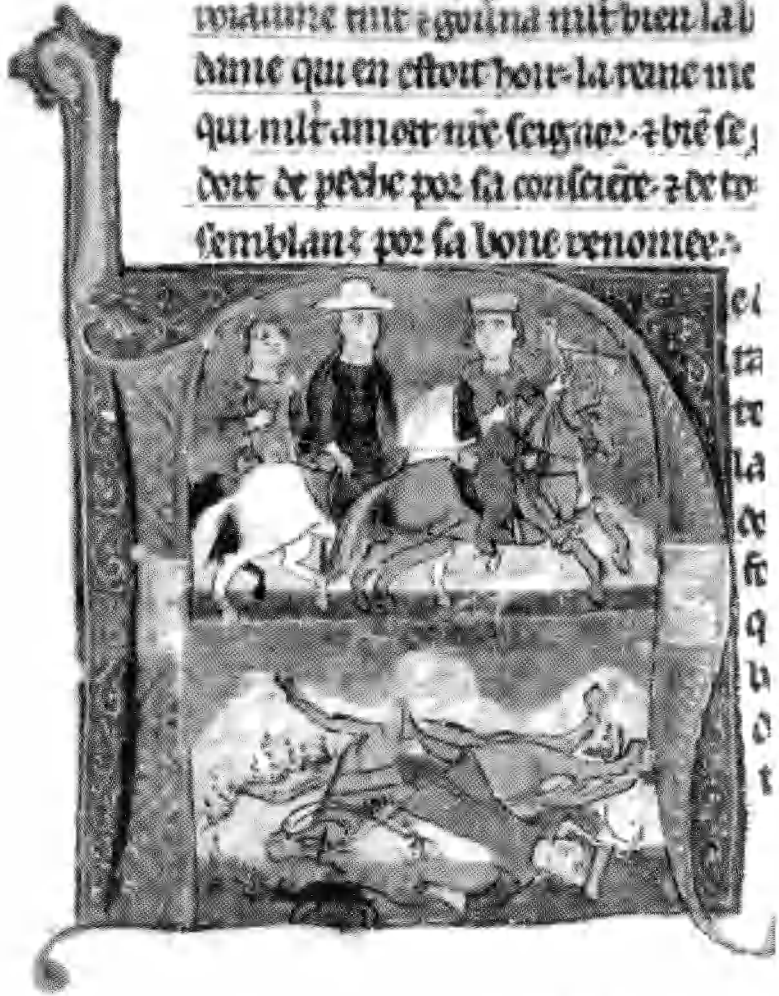 roiaume tint ⁊ gouĩna mlt̃ bien la b
dame qui en estoit hoir. la reine me
qui mlt̃ amoit nr̃e seignor. ⁊ biẽ se g
doit de peche por sa consciẽce. ⁊ de to
semblant por sa bone renomee.
el
ra
te
la
de
fe
q